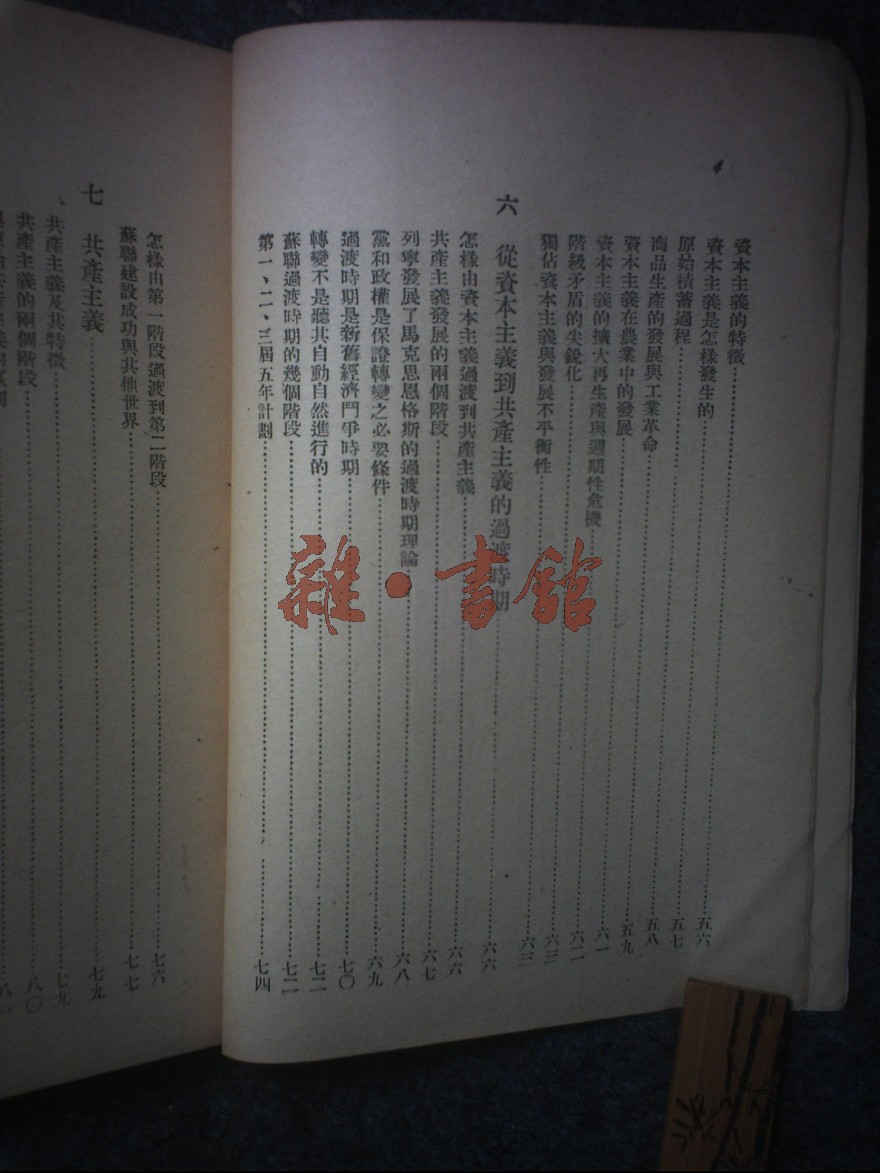 4
資本主義的特徵
資本主義是怎樣發生的 五六
原始積蓄過程 五七
商品生產的發展與工業革命 五八
資本主義在農業中的發展 五九
資本主義的擴大再生產與週期性危機 六一
階級矛盾的尖銳化 六二
獨佔資本主義與發展不平衡性 六三
六 從資本主義到共產主義的過渡時期 六六
怎樣由資本主義過渡到共產主義 六六
共產主義發展的兩個階段 六七
列寧發展了馬克思恩格斯的過渡時期理論 六八
黨和政權是保證轉變之必要條件 六九
過渡時期是新舊經濟鬥爭時期 七〇
轉變不是聽其自動自然進行的 七二
蘇聯過渡時期的幾個階段 七二
第一、二、三屆五年計劃 七四
怎樣由第一階段過渡到第二階段 七六
蘇聯建設成功與其他世界 七七
七 共產主義 七九
共產主義及其特徵 七九
共產主義的兩個階段 八〇
雜·書館